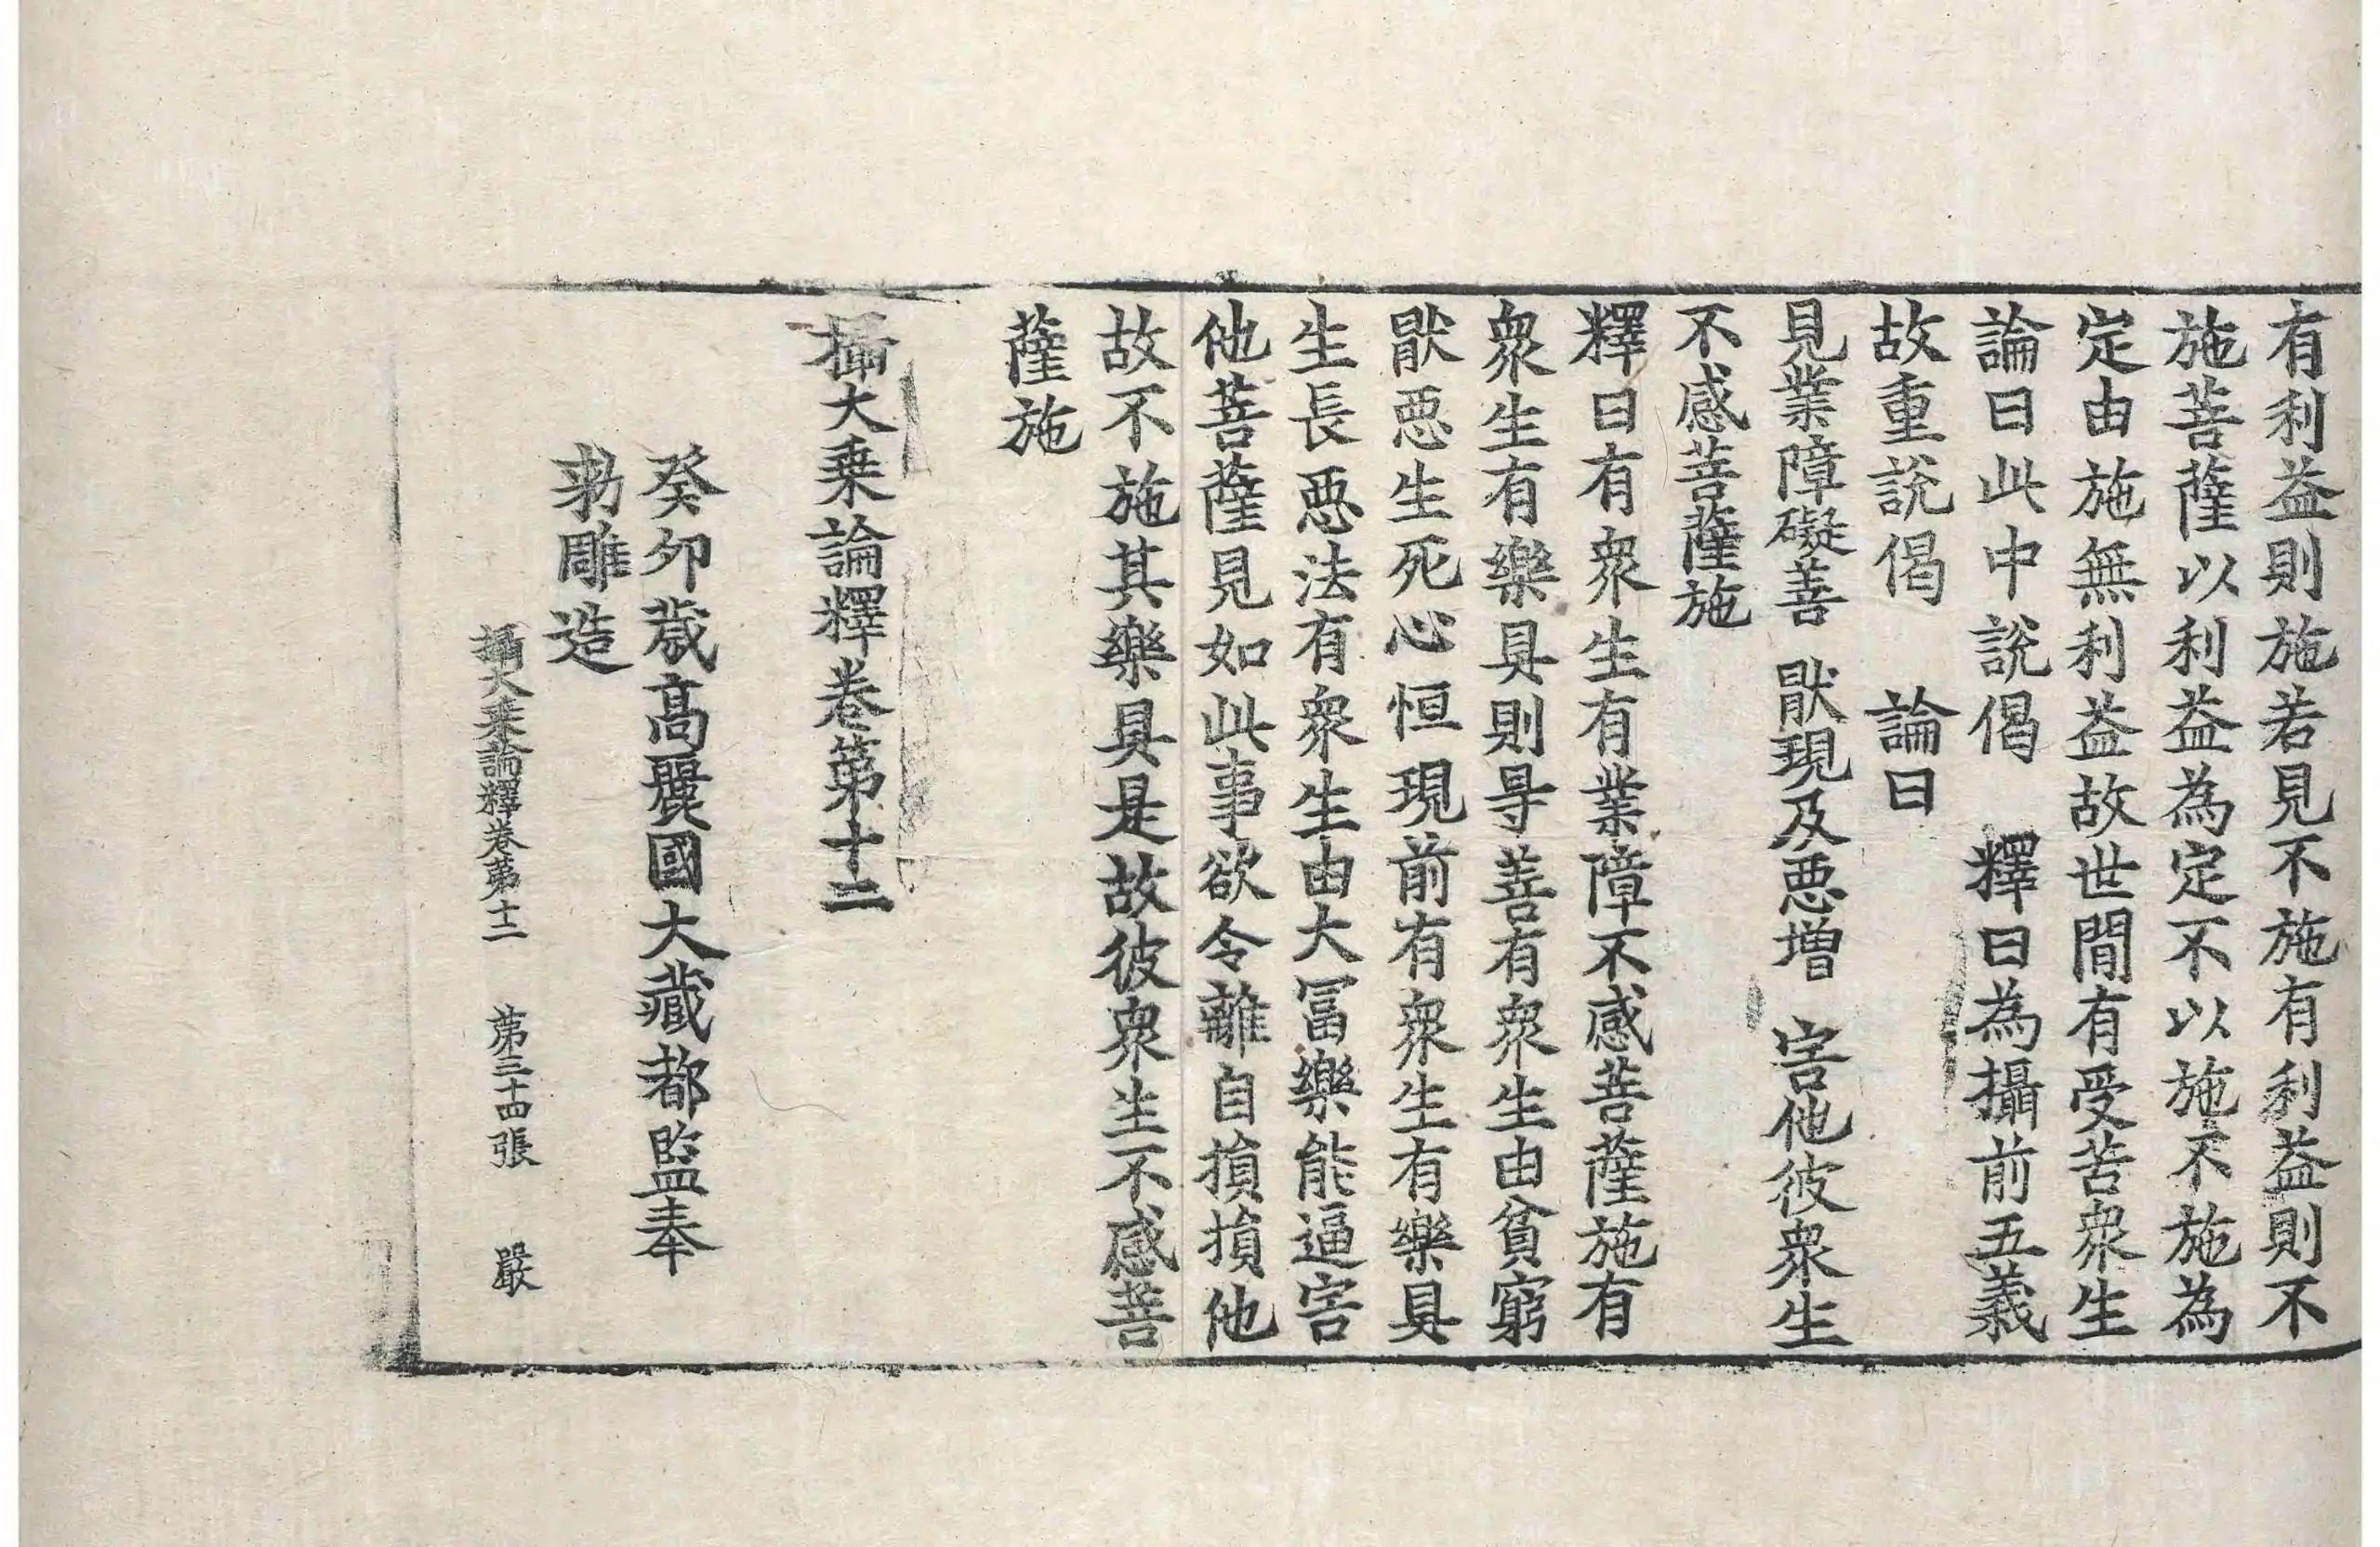 有利益則施若見不施有利益則不
施菩薩以利益為定不以施不施為
定由施無利益故世間有受苦衆生
論曰此中說偈　釋曰為攝前五義
故重說偈　論曰
見業障礙善　猒現及惡增　害他彼衆生
不感菩薩施
釋曰有衆生有業障不感菩薩施有
衆生有樂具則㝵善有衆生由貧窮
猒惡生死心恒現前有衆生有樂具
生長惡法有衆生由大冨樂能逼害
他菩薩見如此事欲令離自損損他
故不施其樂具是故彼衆生不感菩
薩施
攝大乗論釋卷第十二
癸卯歲高麗國大藏都監奉
勑雕造
攝大乗論釋卷第十二　第三十四張　嚴